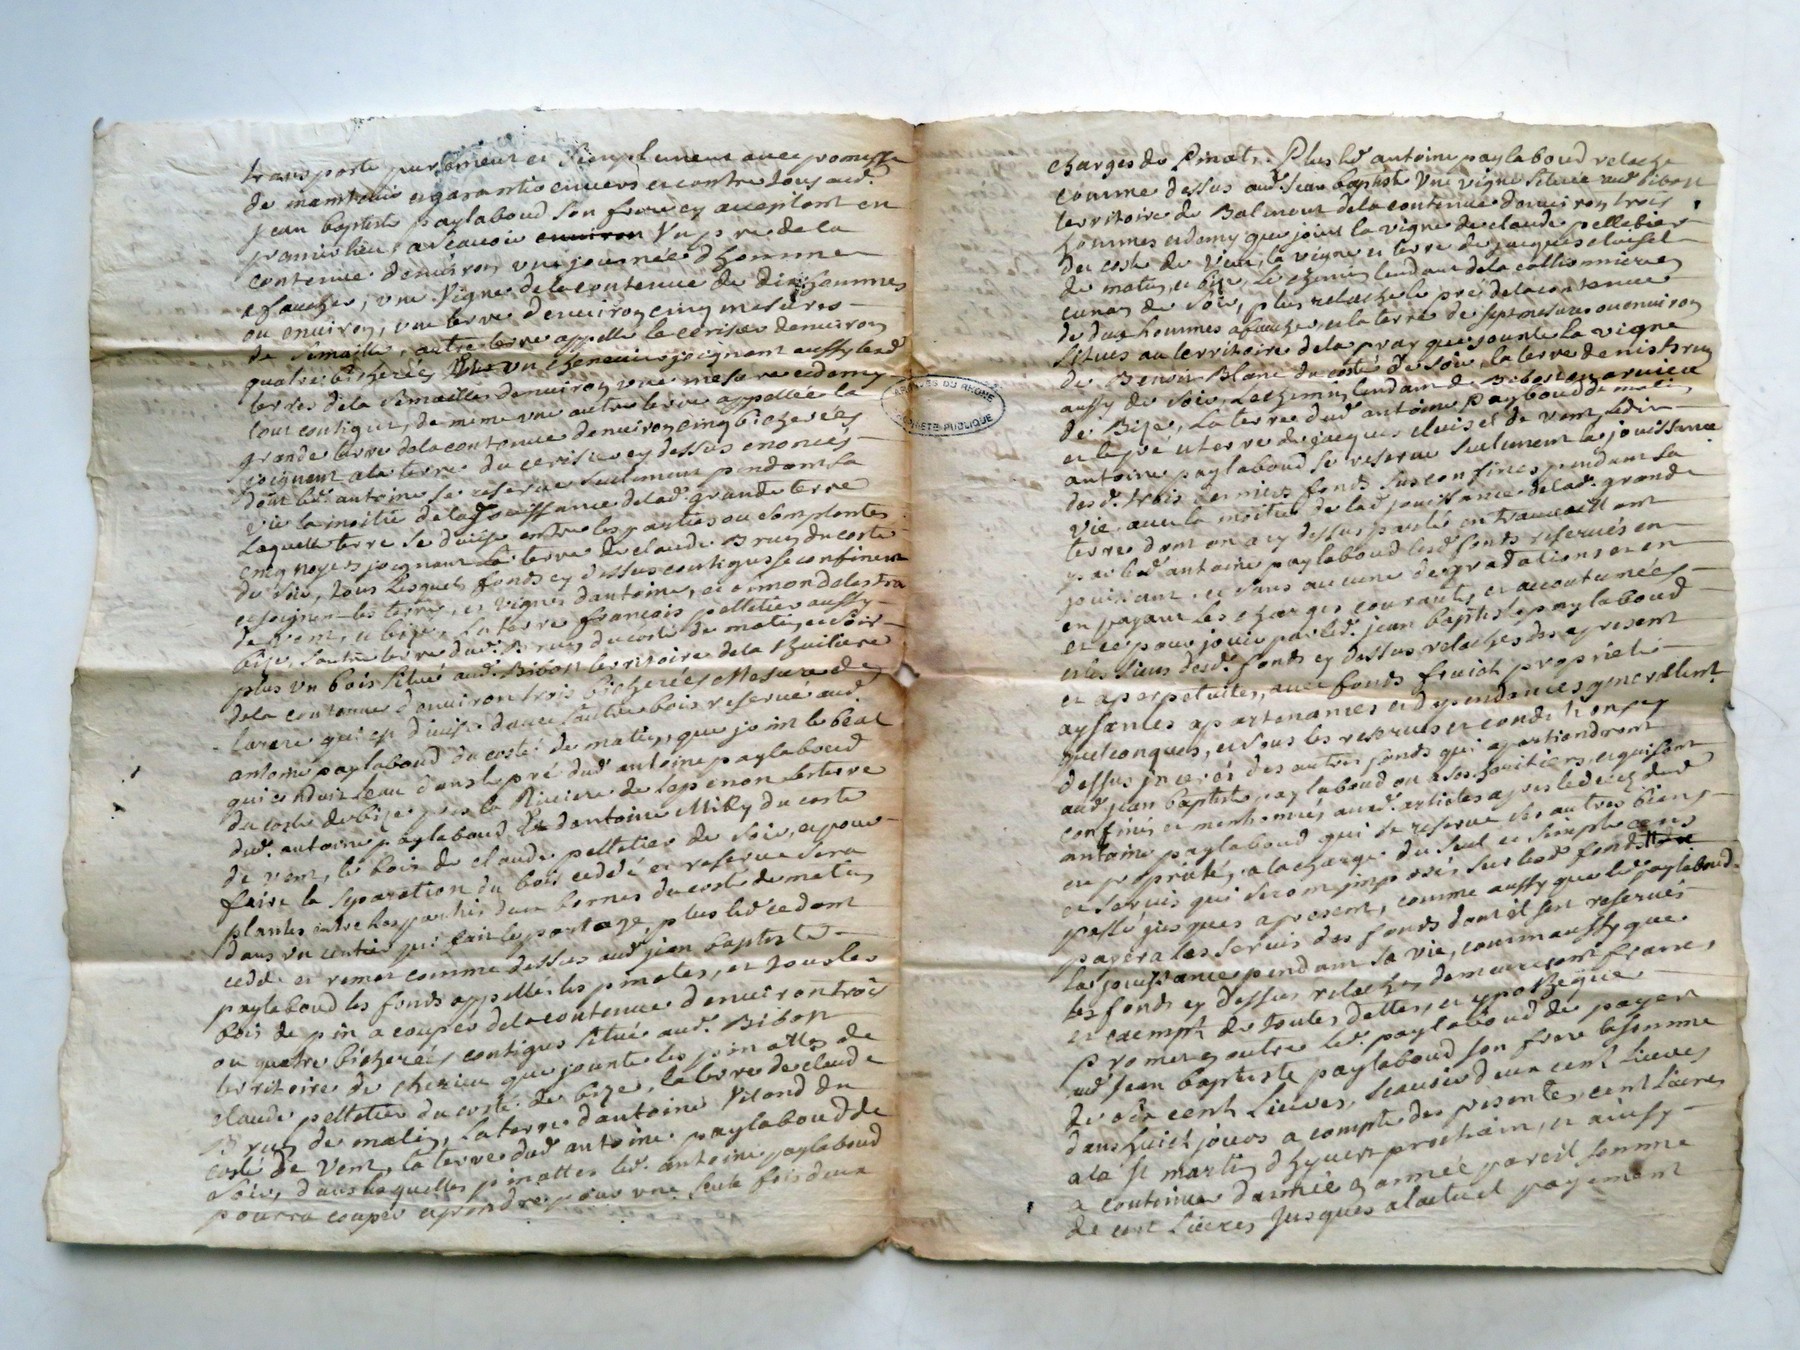 transporte purement et simplement avec promesse
de maintenir et garantir envers et contre tous aud.
jean baptiste paylaboud son frere cy acceptant en
premier lieu ascavoir environ Un pré de la
contenue denviron une journée d'homme
a faucher, une Vigne dela contenue de dix hommes
ou environ, une terre denviron cinq mesures
de semaille, autre terre appellé le cerisier denviron
quatre bicherées Un chenevier joignant aussy lesd.
terres dela semaille denviron une mesure et demy
tout contigus, de meme une autre terre appellée la
grande terre dela contenue denviron cinq bicherées
joignant ala terre du cerisier cy dessus enoncés
dont led. antoine se reserve seulement pendant sa
vie la moitié de lad. jouissance delad. grande terre
Laquelle terre se divise entre les parties
cinq noyers joignant la terre de claude Brun du costé
de soir, tous lesquels fonds cy dessus contigus se confinent
et joignent les terre, et vignes d'antoine, et
de vent, et bize, la terre françois pelletier aussy
bize, l'autre terre dud. Brun du costé de matin, et soir
plus un bois situé aud. Bibost territoire de la
dela contenue denviron trois bicherées Mesure de
larare qui est divisé davec l'autre bois reservé aud.
antoine paylaboud du costé de matin, que joint le béal
qui conduit l'eau dans le pré dud. antoine paylaboud
du costé de bize, la Riviere de la terre
dud. antoine paylaboud d'antoine du costé
de vent, le bois de claude pelletier de soir, et pour
faire la separation du bois cedé et reservé sera
plantés entre les parties deux bornes du costé de matin
dans un sentier qui fait le partage, plus led. cedant
cede et remet comme dessus aud. jean baptiste
paylaboud les fonds appellés les pinates, et tous les
bois de pin a couper dela contenue denviron trois
ou quatre bicherées, contigus situé aud. Bibost
territoire de que jointe les pinattes de
claude pelletier du costé de bize, la terre de claude
Brun de matin, la terre d'antoine du
costé de Vent, la terre dud. antoine paylaboud de
soir, dans laquelles pinattes led. antoine paylaboud
pourra couper a prendre pour une seule fois deux
charges de Pinats. Plus led. antoine paylaboud relache
comme dessus aud. jean baptiste Une vigne située aud. Bibost
territoire de Balmont dela contenue denviron trois
hommes et demy que joint la vigne de claude pelletier
du costé de Vent, la vigne et terre de jacques
de matin, et bize, le chemin tendant de la
de soir, plus relache le pré dela contenue
de deux hommes a faucher et la terre de sept mesures ou environ
situés au territoire de la que jointe la vigne
de Benoit Blanc du costé de soir, la terre denis Brun
aussy de soir, le chemin tendant de Bibost
de Bize, la terre dud. antoine paylaboud de matin
et le pré et terre de jacques et de vent, ledit
antoine paylaboud se reserve seulement la jouissance
desd. trois derniers fonds sus confinés pendant sa
vie avec la moitié de lad. jouissance delad. grande
terre dont on a cy dessus parlé
par led. antoine paylaboud lesd. fonds reservés en
jouissant et sans aucune degradations et en
en payant les charges courants, et accoutumées
et ce pour jouir par led. jean baptiste paylaboud
et les siens desd. fonds cy dessus relachés des apresent
et a perpetuités, avec fonds fruict proprieté
aysances apartenances et dependances generallemt.
quelconques, et sous les reserves et conditions cy
dessus inserés des autres fonds qui apartiendront
aud. jean baptiste paylaboud ou a ses heritiers,
confinés et mentionnés aud. articles apres le decez dud.
antoine paylaboud qui se reserve ses autres biens
en proprieté, a la charge du seul et simple cens
et servis qui seront imposés sur lesd. fonds
passé jusques apresent, comme aussy que led. paylaboud
payera les servis des fonds dont il s'est reservés
la jouissance pendant sa vie, comm'aussy que
les fonds cy dessus relachés demeureront francs,
et exempt de toutes dettes, et ypotheque
promet en outre led. paylaboud de payer
aud. jean baptiste paylaboud son frere la somme
de cent Livres, scavoir deux cent Livres
dans huict jours a compte des presentes, cent Livres
a la St martin d'hyvert prochain, et ainsy
a continuer d'année en année pareil somme
de cent Livres jusques alactuel payement
ARCHIVES DU RHONE
PROPRIETE PUBLIQUE